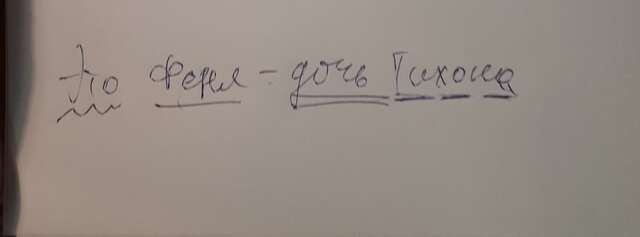 Это Феня - дочь Тихона